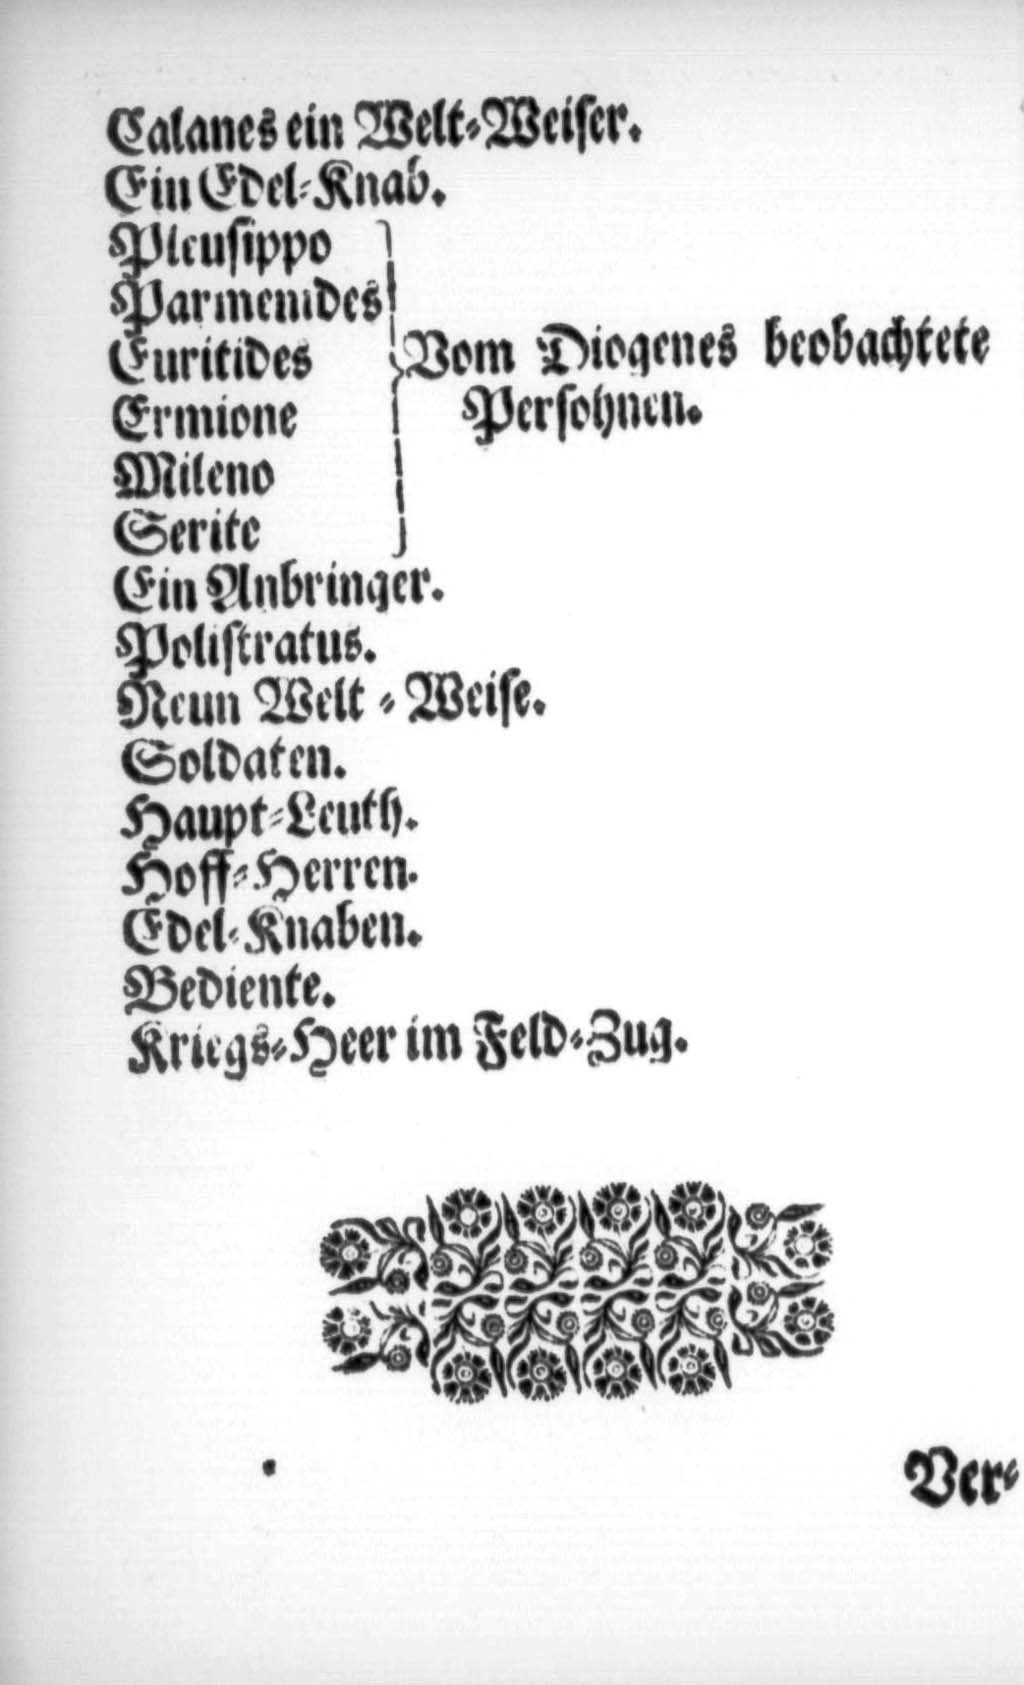 Calanes ein Welt-Weiser.
Ein Edel-Knab.
Pleusippo
Parmenides
Euritides
Ermione
Mileno
Serite
Vom Diogenes beobachtete
Persohnen.
Ein Anbringer.
Polistratus.
Neun Welt-Weise.
Soldaten.
Haupt-Leuth.
Hoff-Herren.
Edel-Knaben.
Bediente.
Kriegs-Heer im Feld-Zug.
Ver-